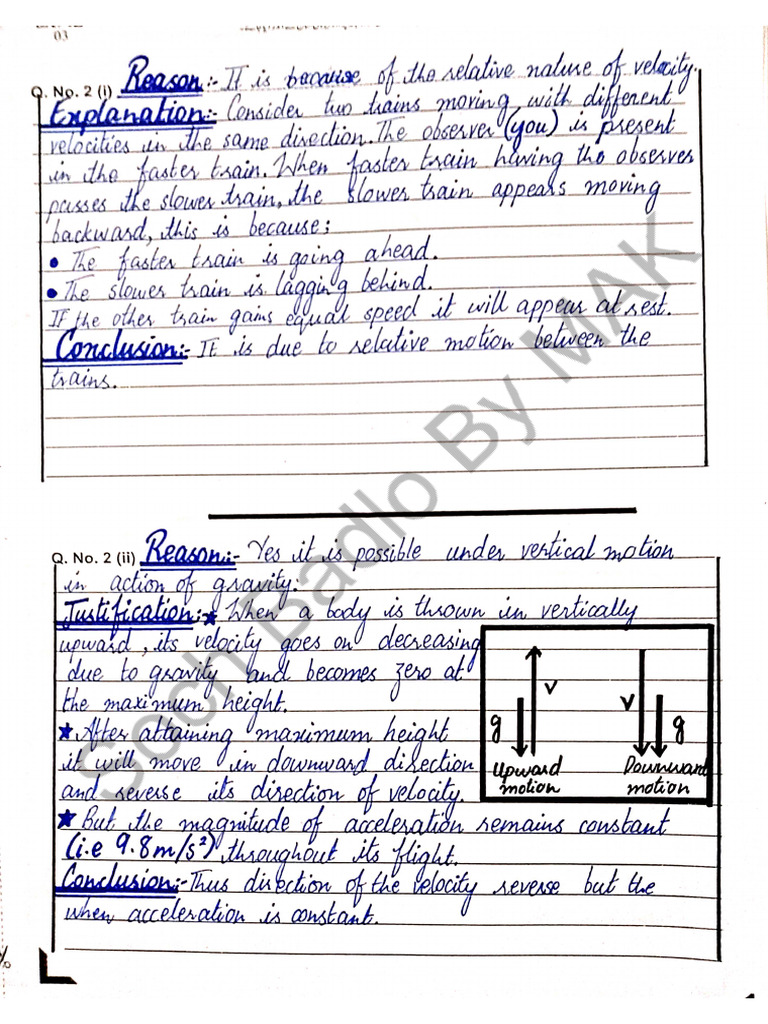 03
Q. No. 2 (i) Reason:- It is because of the relative nature of velocity.
Explanation:- Consider two trains moving with different
velocities in the same direction. The observer (you) is present
in the faster train. When faster train having the observer
passes the slower train, the slower train appears moving
backward, this is because:
• The faster train is going ahead.
• The slower train is lagging behind.
If the other train gains equal speed it will appear at rest.
Conclusion:- It is due to relative motion between the
trains.
Q. No. 2 (ii) Reason:- Yes it is possible under vertical motion
in action of gravity.
Justification:★ When a body is thrown in vertically
upward, its velocity goes on decreasing
due to gravity and becomes zero at
the maximum height.
★ After attaining maximum height
it will move in downward direction
and reverse its direction of velocity.
g v v g
Upward Downward
motion motion
★ But the magnitude of acceleration remains constant
(i.e 9.8m/s²) throughout its flight.
Conclusion:- Thus direction of the velocity reverse but the
when acceleration is constant.
Soch Badlo By MAK